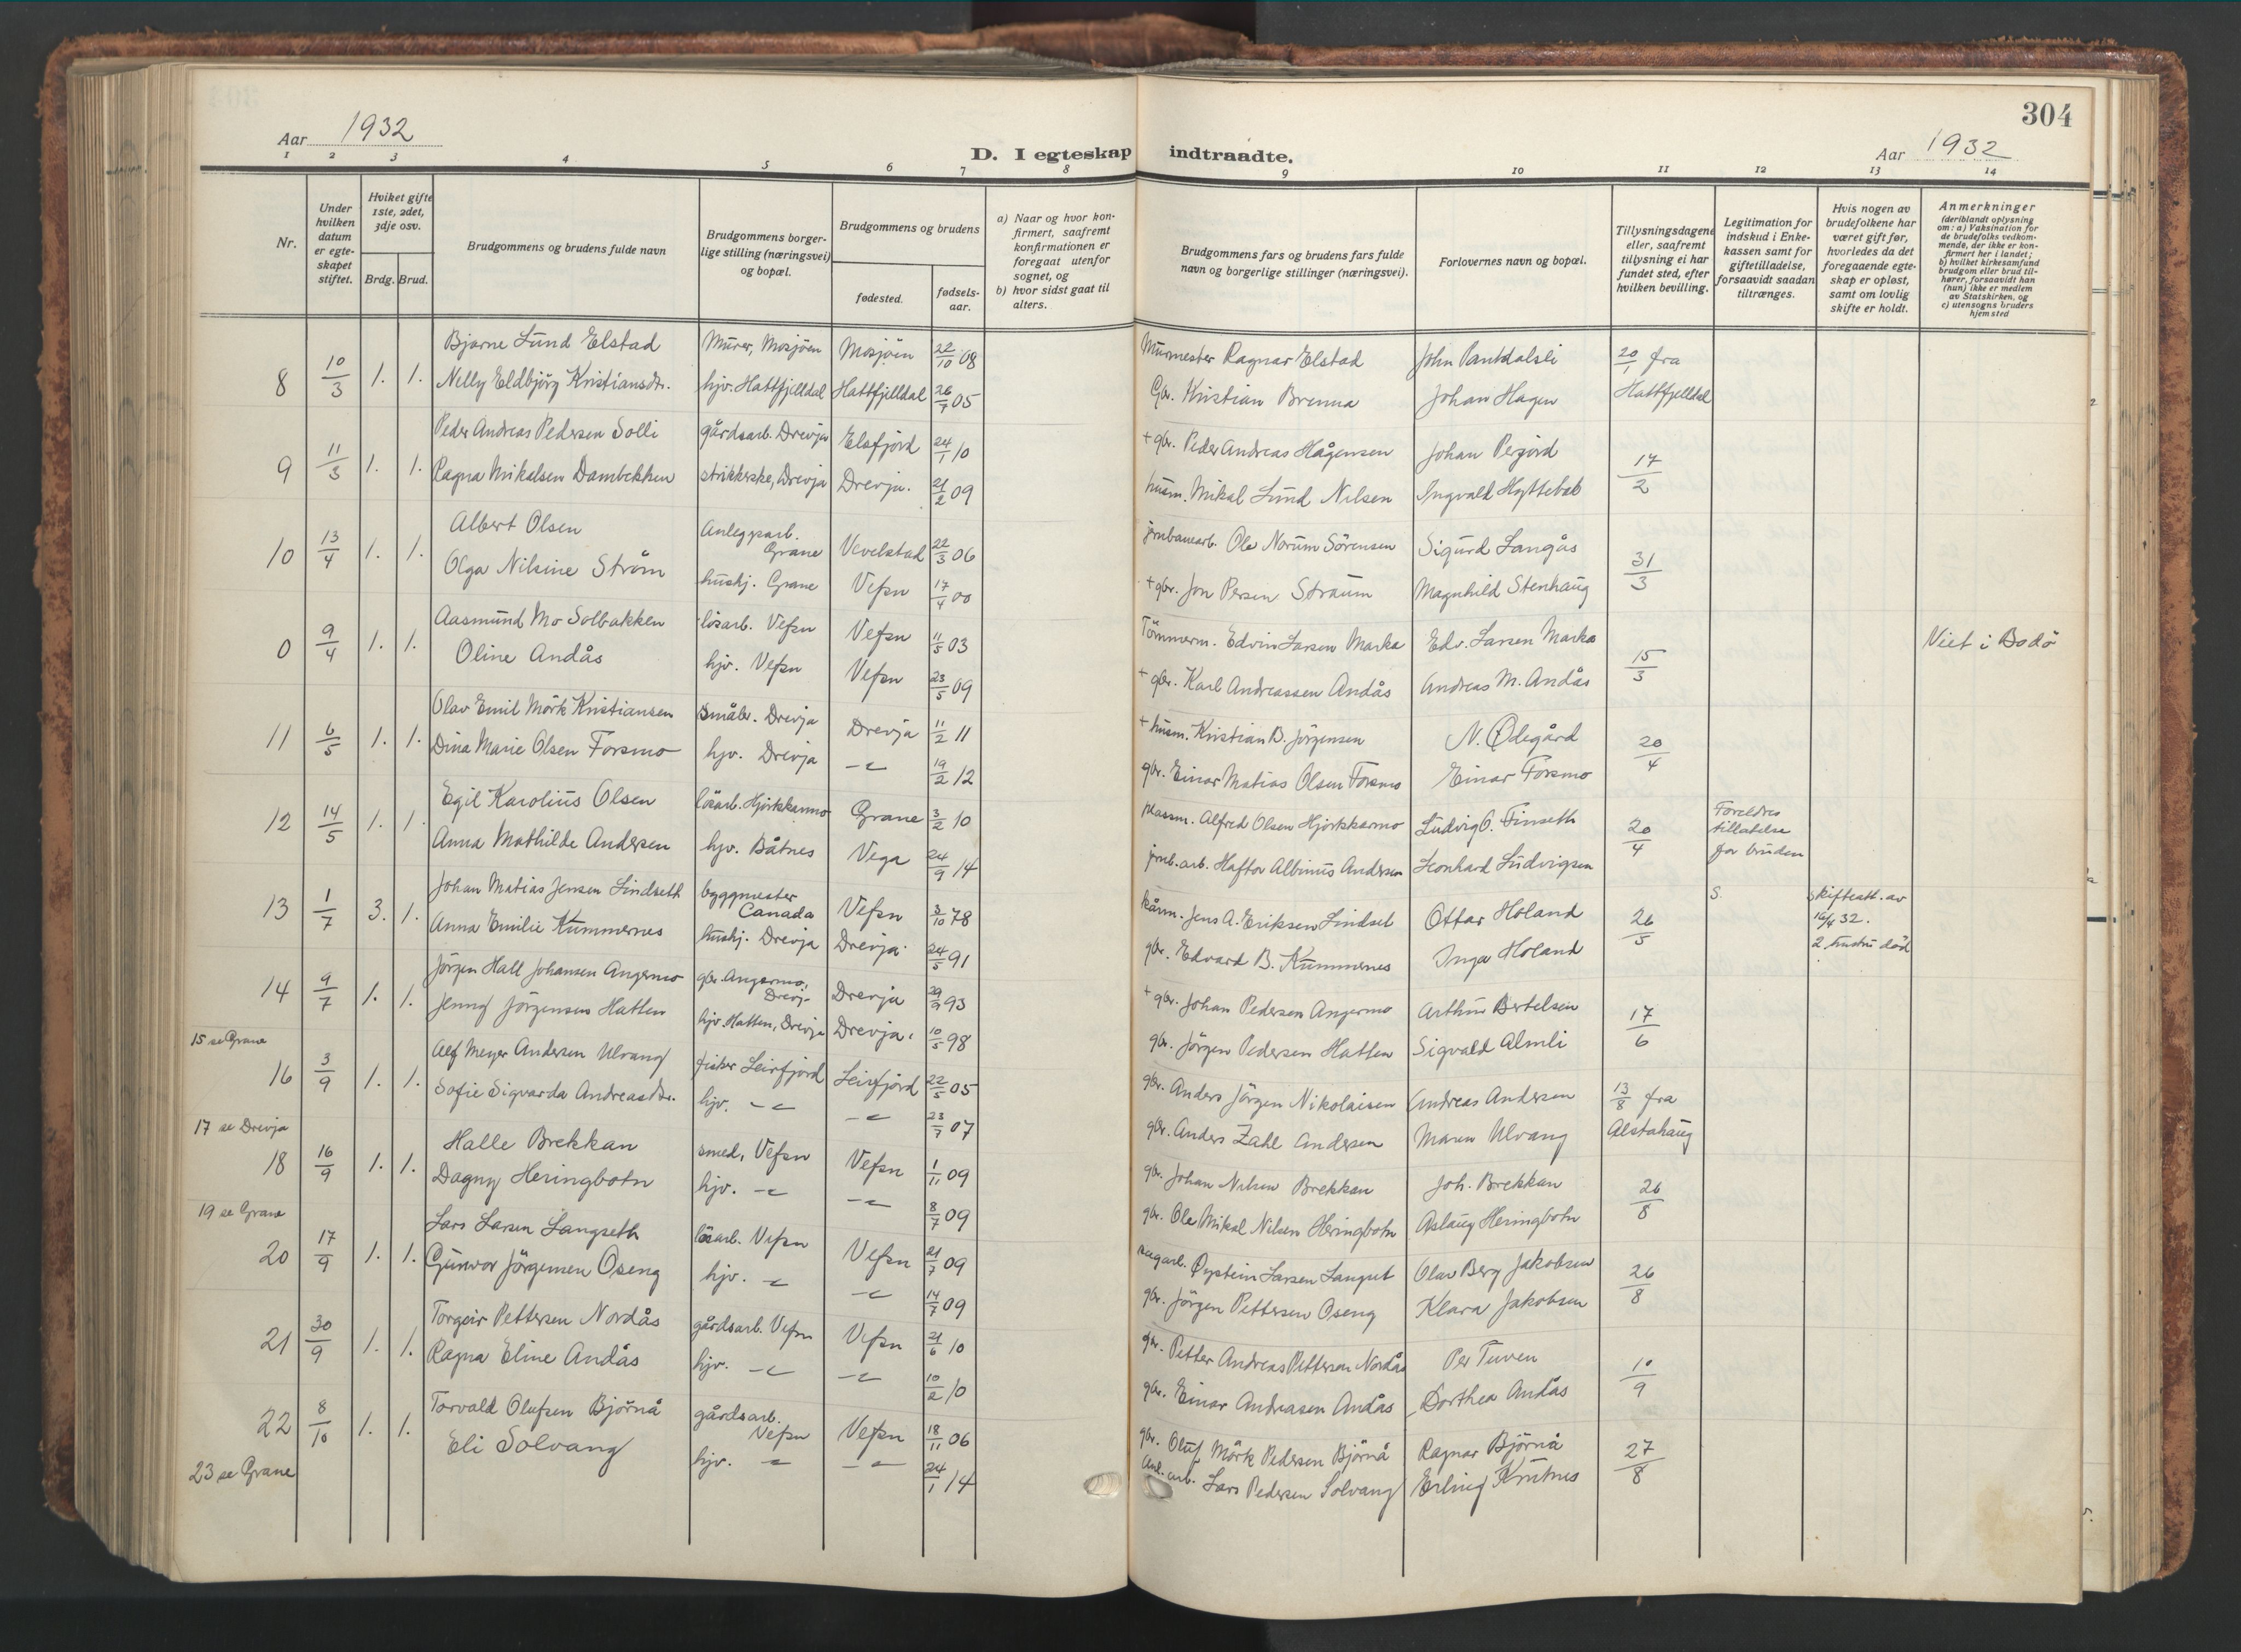 304
Aar 1932
D. I egteskap indtraadte.
Aar 1932
1 2 3 4 5 6 7 8 9 10 11 12 13 14
Nr.
Under hvilken datum er egte-skapet stiftet.
Hviket gifte 1ste, 2det, 3dje osv.
Brdg. Brud.
Brudgommens og brudens fulde navn
Brudgommens borger-lige stilling (næringsvei) og bopæl.
Brudgommens og brudens
fødested.
fødsels-aar.
a) Naar og hvor kon-firmert, saafremt konfirmationen er foregaat utenfor sognet, og
b) hvor sidst gaat til alters.
Brudgommens fars og brudens fars fulde navn og borgerlige stillinger (næringsvei).
Forlovernes navn og bopæl.
Tillysningsdagene eller, saafremt tillysning ei har fundet sted, efter hvilken bevilling.
Legitimation for indskud i Enke-kassen samt for giftetilladelse, forsaavidt saadan tiltrænges.
Hvis nogen av brudefolkene har været gift før, hvorledes da det foregaaende egte-skap er opløst, samt om lovlig skifte er holdt.
Anmerkninger
(deriblandt oplysning om: a) Vaksination for de brudefolks vedkom-mende, der ikke er kon-firmert her i landet; b) hvilket kirkesamfund brudgom eller brud til-hører, forsaavidt han (hun) ikke er medlem av Statskirken, og c) utensogns bruders hjemsted
8 10/3 1. 1. Bjarne Lund Elstad Murer, Mosjöen Mosjöen 22/10 08 Murmester Ragnar Elstad John Pantdalsli 20/1 fra
Nelly Eldbjörg Kristiansdtr. hjv. Hattfjelldal Hattfjelldal 26/7 05 Gbr. Kristian Brenna Johan Hagen Hattfjelldal
9 11/3 1. 1. Peder Andreas Pedersen Solli gårdsarb. Drevja Elsfjord 24/1 10 + gbr. Peder Andreas Hågensen Johan Perjord 17/2
Ragna Mikalsen Dambekken strikkerske, Drevja Drevja. 21/2 09 husm. Mikal Lund Nilsen Ingvald Hyttebak
10 13/4 1. 1. Albert Olsen Anleggsarb. Grane Vevelstad 22/3 06 jernbanearb. Ole Norum Sörensen Sigurd Langås 31/3
Olga Nilsine Ström hushj. Grane Vefsn 17/4 00 + gbr. Jon Persen Straum Magnhild Stenhaug
0 9/4 1. 1. Aasmund Mo Solbakken lösarb. Vefsn Vefsn 11/5 03 Tömmerm. Edvin Larsen Marka Edv. Larsen Marka 15/3 Viet i Bodö
Oline Andås hjv. Vefsn Vefsn 23/5 09 + gbr. Karl Andreassen Andås Andreas M. Andås
11 6/5 1. 1. Olav Emil Mörk Kristiansen småbr. Drevja Drevja 11/2 11 + husm. Kristian B. Jörgensen N. Ødegård 20/4
Dina Marie Olsen Forsmo hjv. Drevja -"- 19/2 12 gbr. Einar Matias Olsen Forsmo Einar Forsmo
12 14/5 1. 1. Egil Karolius Olsen lösarb. Hjortskarmo Grane 3/2 10 Alfred Olsen Hjortskarmo Ludvig O. Finseth 20/4 Foreldres tillatelse for bruden
Anna Mathilde Andersen hjv. Båtnes Vega 24/9 14 jernb.arb. Haftor Albinus Andersen Leonhard Ludvigsen
13 1/7 3. 1. Johan Matias Jensen Lindseth byggmester Canada Vefsn 3/10 78 kårm. Jens A. Eriksen Lindset Ottar Holand 26/5 S. Skifteatt. av 16/4 32. 2. hustru död
Anna Emilie Kummernes hushj. Drevja Drevja. 24/5 91 gbr. Edvard B. Kummernes Inga Holand
14 9/7 1. 1. Jörgen Hall Johansen Angermo gbr. Angermo, Drevj. Drevja 29/9 93 + gbr. Johan Pedersen Angermo Arthur Bertelsen 17/6
Jenny Jörgensen Hatten hjv. Hatten, Drevja Drevja. 10/5 98 gbr. Jörgen Pedersen Hatten Sigvald Almli
15 se Grane
16 3/9 1. 1. Alf Meyer Andersen Ulvang fisker Leirfjord Leirfjord 22/5 05 gbr. Anders Jörgen Nikolaisen Andreas Andersen 13/8 fra
Sofie Sigvarda Andreasdtr. hjv. -"- -"- 23/7 07 gbr. Anders Zahl Andersen Maren Ulvang Alstahaug
17 se Drevja
18 16/9 1. 1. Halle Brekkan smed, Vefsn Vefsn 1/11 09 gbr. Johan Nilsen Brekkan Joh. Brekkan 26/8
Dagny Heringbotn hjv. -"- -"- 8/7 09 gbr. Ole Mikal Nilsen Heringbotn Aslaug Heringbotn
19 se Grane
20 17/9 1. 1. Lars Larsen Langseth lösarb. Vefsn Vefsn 21/7 09 sagarb. Øystein Larsen Langset Olav Berg Jakobsen 26/8
Gunvor Jörgensen Oseng hjv. -"- -"- 14/7 09 gbr. Jörgen Pettersen Oseng Klara Jakobsen
21 30/9 1. 1. Torgeir Pettersen Nordås gårdsarb. Vefsn Vefsn 21/6 10 gbr. Petter Andreas Pettersen Nordås Per Tuven 10/9
Ragna Eline Andås hjv. -"- -"- 10/2 10 gbr. Einar Andreasen Andås Dorthea Andås
22 8/10 1. 1. Torvald Olufsen Björnå gårdsarb. Vefsn Vefsn 18/11 06 gbr. Oluf Mörk Pedersen Björnå Ragnar Björnå 27/8
Eli Solvang hjv. -"- -"- 24/1 14 Anl. arb. Lars Pedersen Solvang Erling Knutnes
23 se Grane